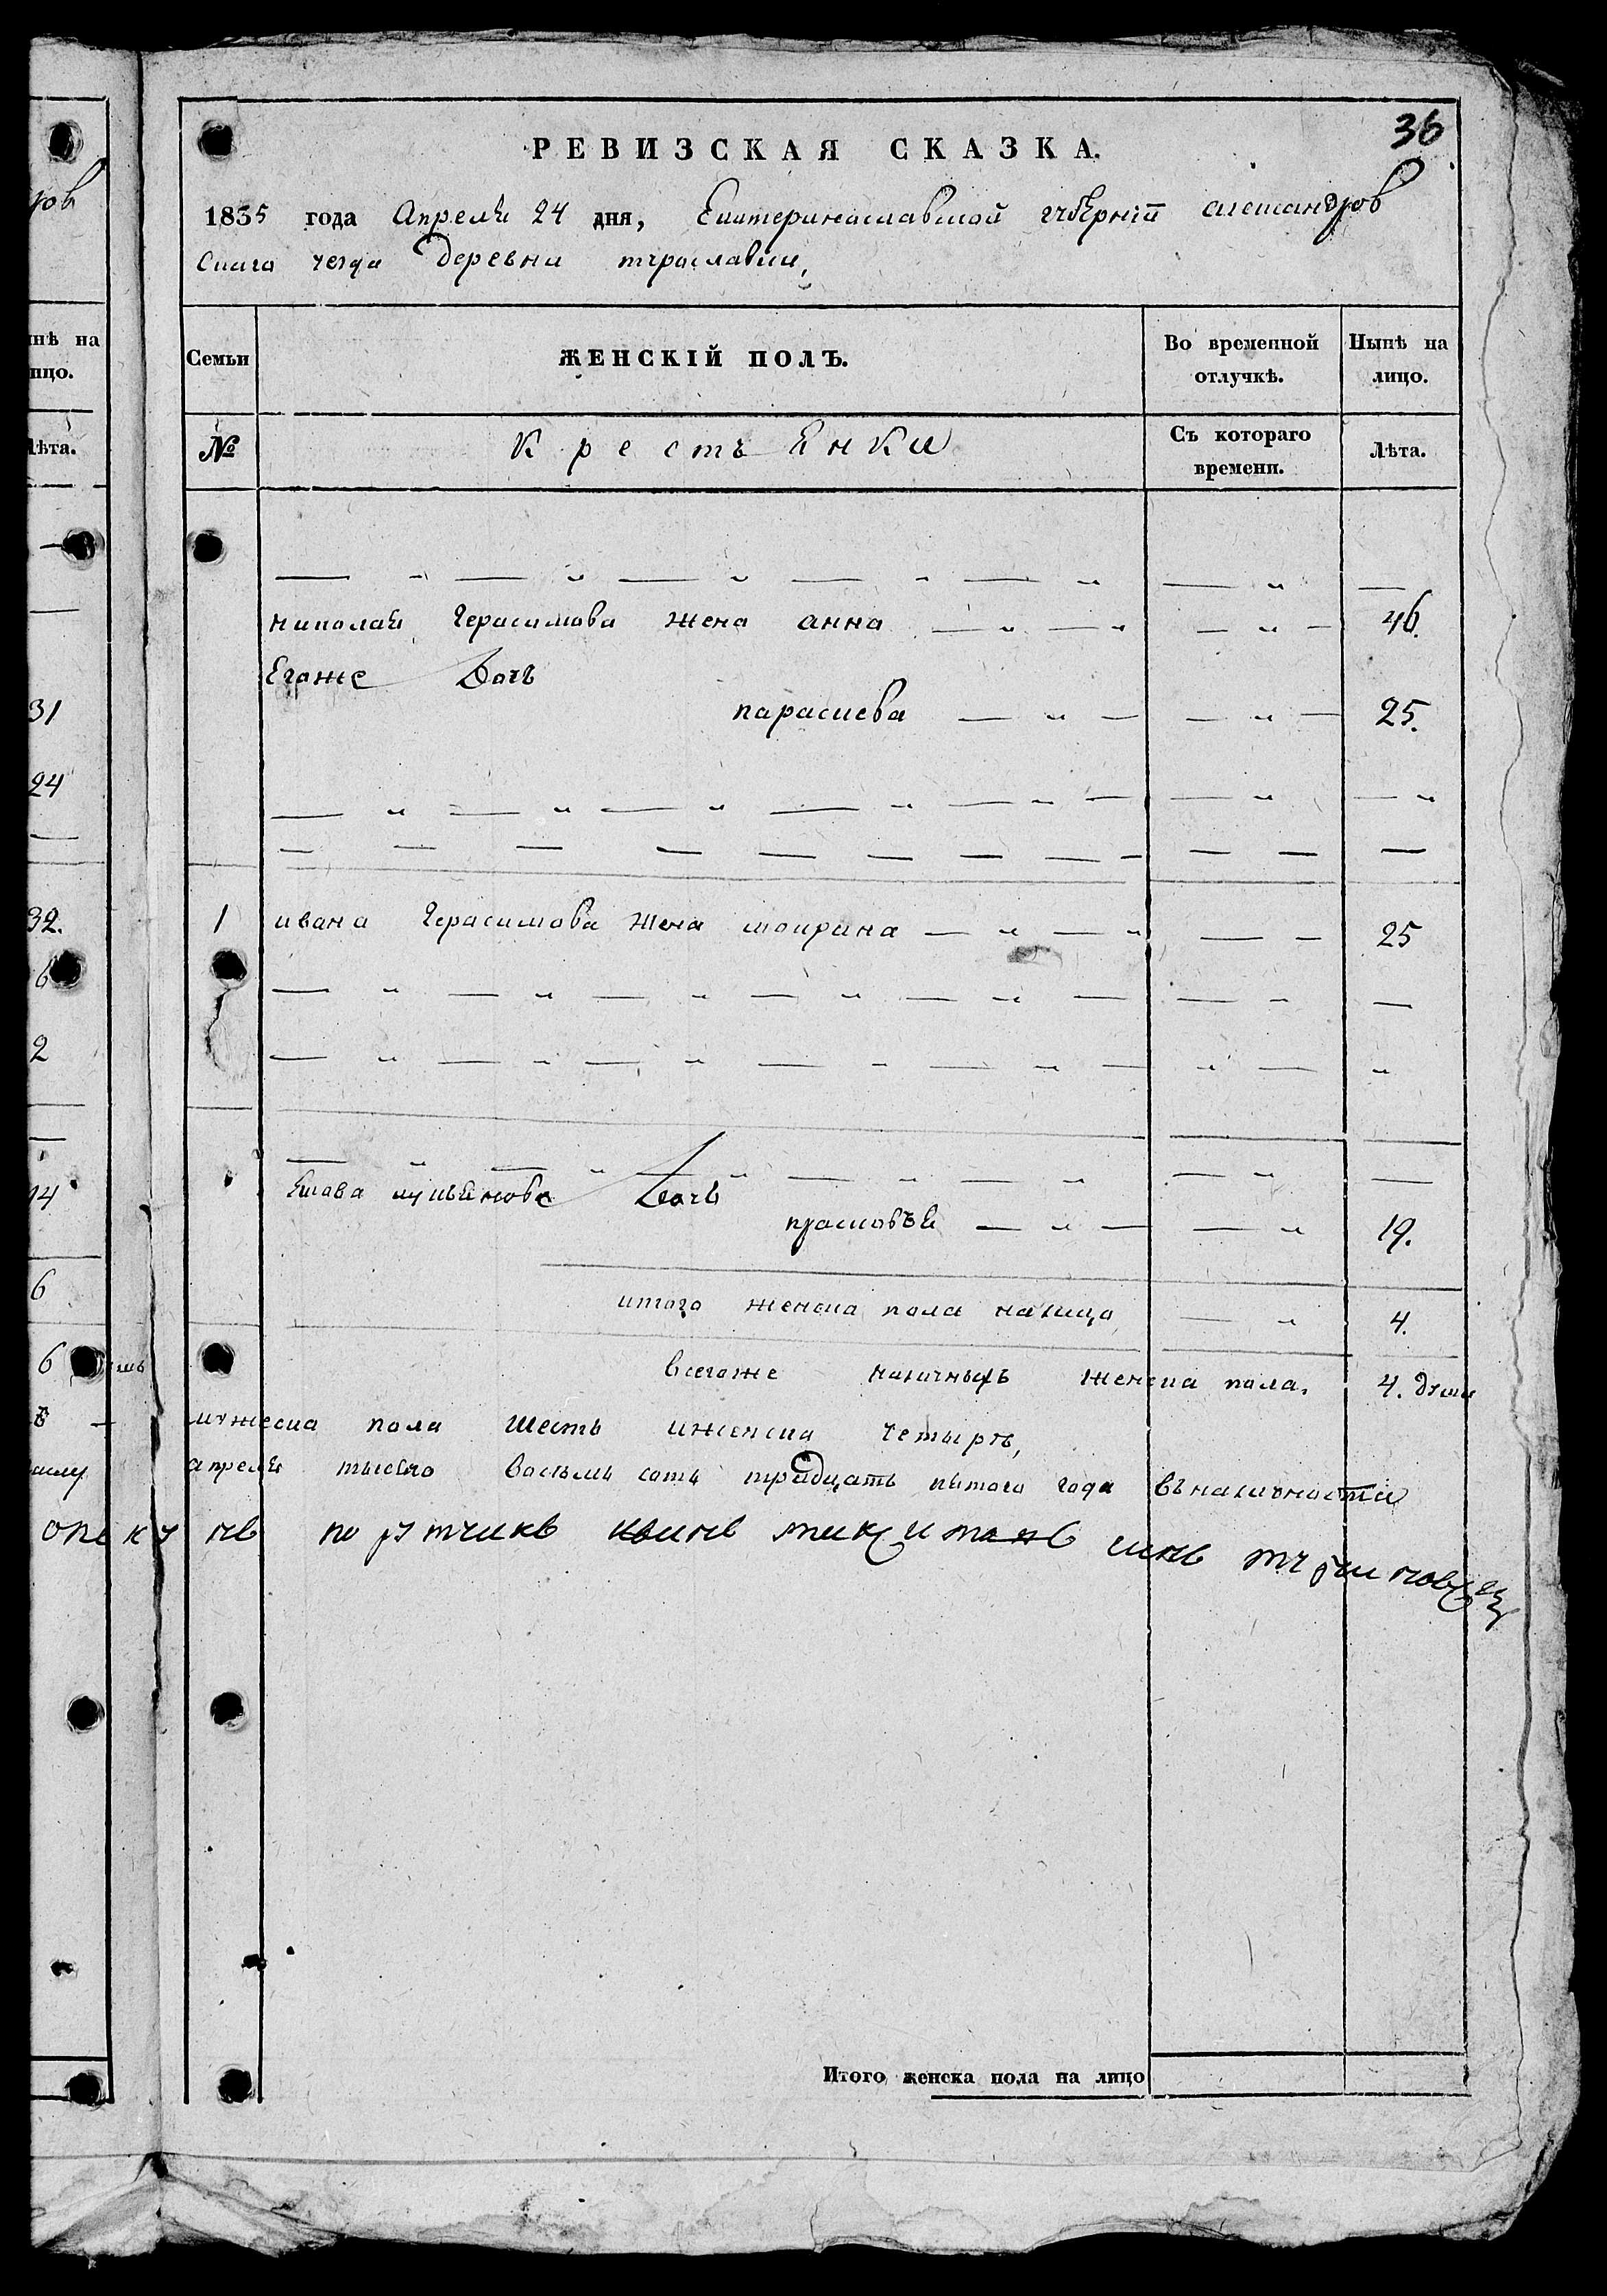 36
РЕВИЗСКАЯ СКАЗКА.
1835 года Апреля 24 дня, Екатеринославской губернии александров
скаго уезда деревни тураславки,
Семьи
ЖЕНСКІЙ ПОЛЪ.
Во временной отлучкѣ.
Нынѣ на лицо.
№
Крестьянки
Съ котораго времени.
Лѣта.
николая Герасимова жена анна 46.
Егоже Дочь
параскева 25.
1 ивана Герасимова жена мокрина 25
Якова лукьянова Дочь
прасковья 19.
итого женска пола налицо 4.
всегоже наличныхъ женска пола. 4. души
мужеска пола шесть иженска четыре,
апреля тысячо восемь сотъ тридцать пятого года въ наличности
опекунъ порутчикъ сынъ
Итого женска пола на лицо
ров
нѣ на
ицо.
Лѣта.
31
24
32.
6
2
14
6
6